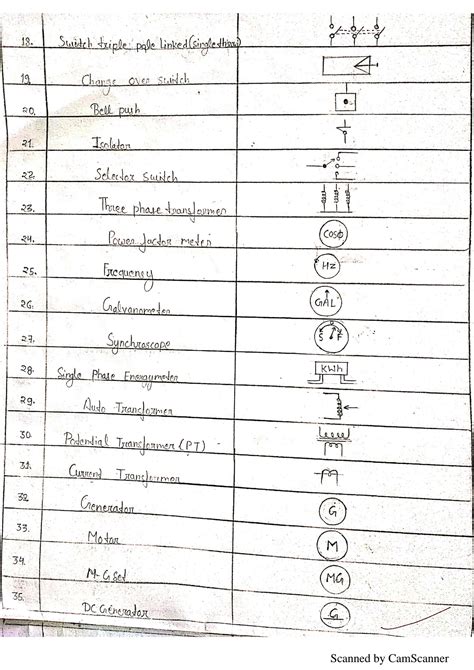 18. Switch triple pole linked (single throw)
19. Change over switch
20. Bell push
21. Isolator
22. Selector switch
23. Three phase transformer
24. Power factor meter COSφ
25. Frequency HZ
26. Galvanometer GAL
27. Synchroscope S F
28. Single Phase Energymeter KWh
29. Auto Transformer
30. Potential Transformer (PT)
31. Current Transformer
32. Generator G
33. Motor M
34. M-G Set MG
35. DC Generator G
Scanned by CamScanner